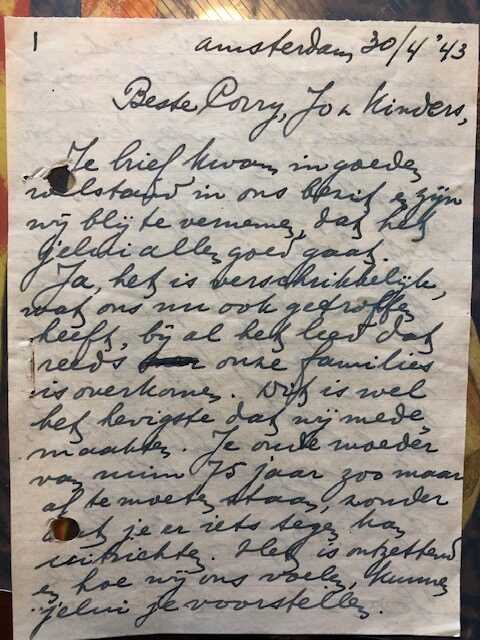 1
Amsterdam, 30/4 '43
Beste Corry, Jo en Kinders,
Je brief kwam in goeden
welstand in ons bezit en zijn
wij blij te vernemen, dat het
jelui allen goed gaat.
Ja, het is verschrikkelijk,
wat ons nu ook getroffen
heeft, bij al het leed dat
reeds onze families
is overkomen. Dit is wel
het hevigste dat wij mede
maakten. Je oude moeder
van ruim 75 jaar zoo maar
af te moeten staan, zonder
dat je er iets tegen kan
uitrichten. Het is ontzettend
en hoe wij ons voelen, kunnen
jelui je voorstellen.